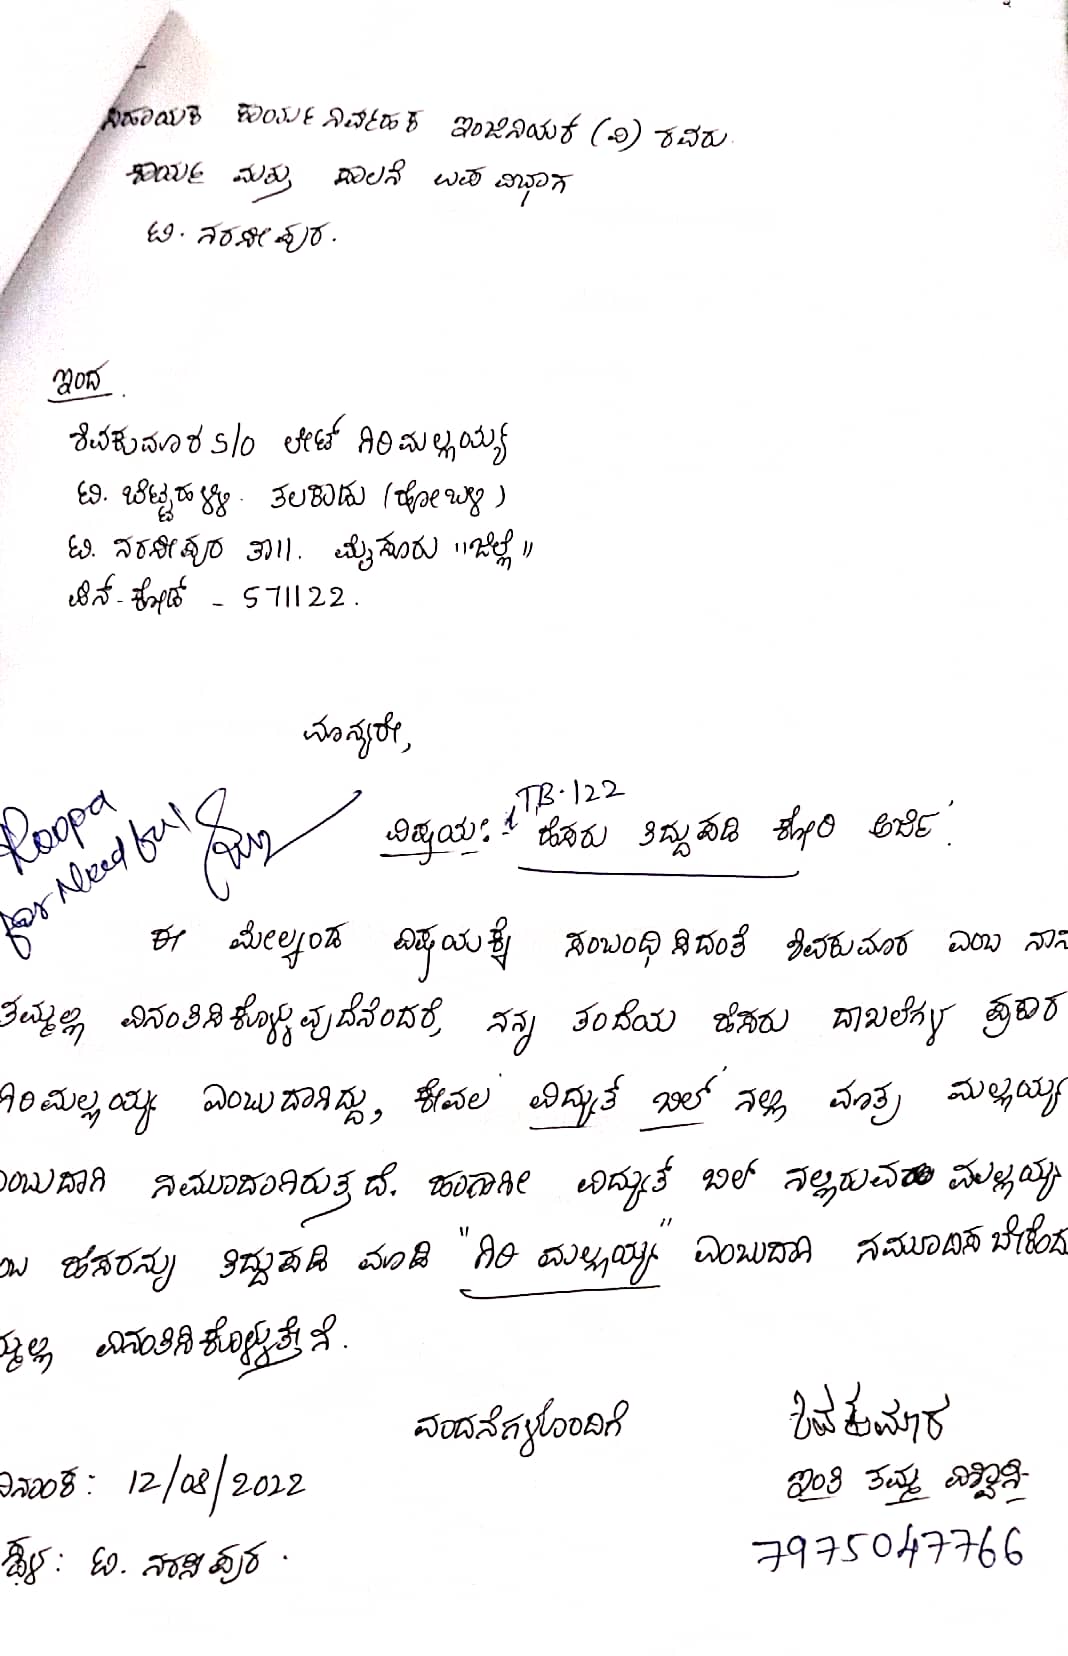 ಸಹಾಯಕ ಕಾರ್ಯನಿರ್ವಾಹಕ ಇಂಜಿನಿಯರ್ (ವಿ) ರವರು
ಕಾರ್ಯ ಮತ್ತು ಪಾಲನೆ ಉಪ ವಿಭಾಗ
ಟಿ. ನರಸೀಪುರ.
ಇಂದ
ಶಿವಕುಮಾರ S/O ಲೇಟ್ ಗಿರಿಮಲ್ಲಯ್ಯ
ಟಿ. ಬೆಟ್ಟಹಳ್ಳಿ. ತಲಕಾಡು (ಹೋಬಳಿ)
ಟಿ. ನರಸೀಪುರ ತಾ||. ಮೈಸೂರು "ಜಿಲ್ಲೆ"
ಪಿನ್-ಕೋಡ್ - 571122.
ಮಾನ್ಯರೇ,
TB-122
Roopa
for Need ful
ವಿಷಯ: ಹೆಸರು ತಿದ್ದುಪಡಿ ಕೋರಿ ಅರ್ಜಿ.
ಈ ಮೇಲ್ಕಂಡ ವಿಷಯಕ್ಕೆ ಸಂಬಂಧಿಸಿದಂತೆ ಶಿವಕುಮಾರ ಎಂಬ ನಾನ
ತಮ್ಮಲ್ಲಿ ವಿನಂತಿಸಿಕೊಳ್ಳುವುದೆನೆಂದರೆ, ನನ್ನ ತಂದೆಯ ಹೆಸರು ದಾಖಲೆಗಳ ಪ್ರಕಾರ
ಗಿರಿಮಲ್ಲಯ್ಯ ಎಂಬುದಾಗಿದ್ದು, ಕೇವಲ ವಿದ್ಯುತ್ ಬಿಲ್ ನಲ್ಲಿ ಮಾತ್ರ ಮಲ್ಲಯ್ಯ
ಎಂಬುದಾಗಿ ನಮೂದಾಗಿರುತ್ತದೆ. ಹಾಗಾಗೀ ವಿದ್ಯುತ್ ಬಿಲ್ ನಲ್ಲಿರುವ ಮಲ್ಲಯ್ಯ
ಂಬ ಹೆಸರನ್ನು ತಿದ್ದುಪಡಿ ಮಾಡಿ "ಗಿರಿ ಮಲ್ಲಯ್ಯ" ಎಂಬುದಾಗಿ ನಮೂದಿಸ ಬೇಕೆಂದ
ಮ್ಮಲ್ಲಿ ವಿನಂತಿಸಿಕೊಳ್ಳುತ್ತೇನೆ.
ವಂದನೆಗಳೊಂದಿಗೆ
ಶಿವಕುಮಾರ
ದಿನಾಂಕ: 12/08/2022
ಇಂತಿ ತಮ್ಮ ವಿಶ್ವಾಸಿ
7975047766
ಸ್ಥಳ: ಟಿ. ನರಸೀಪುರ.